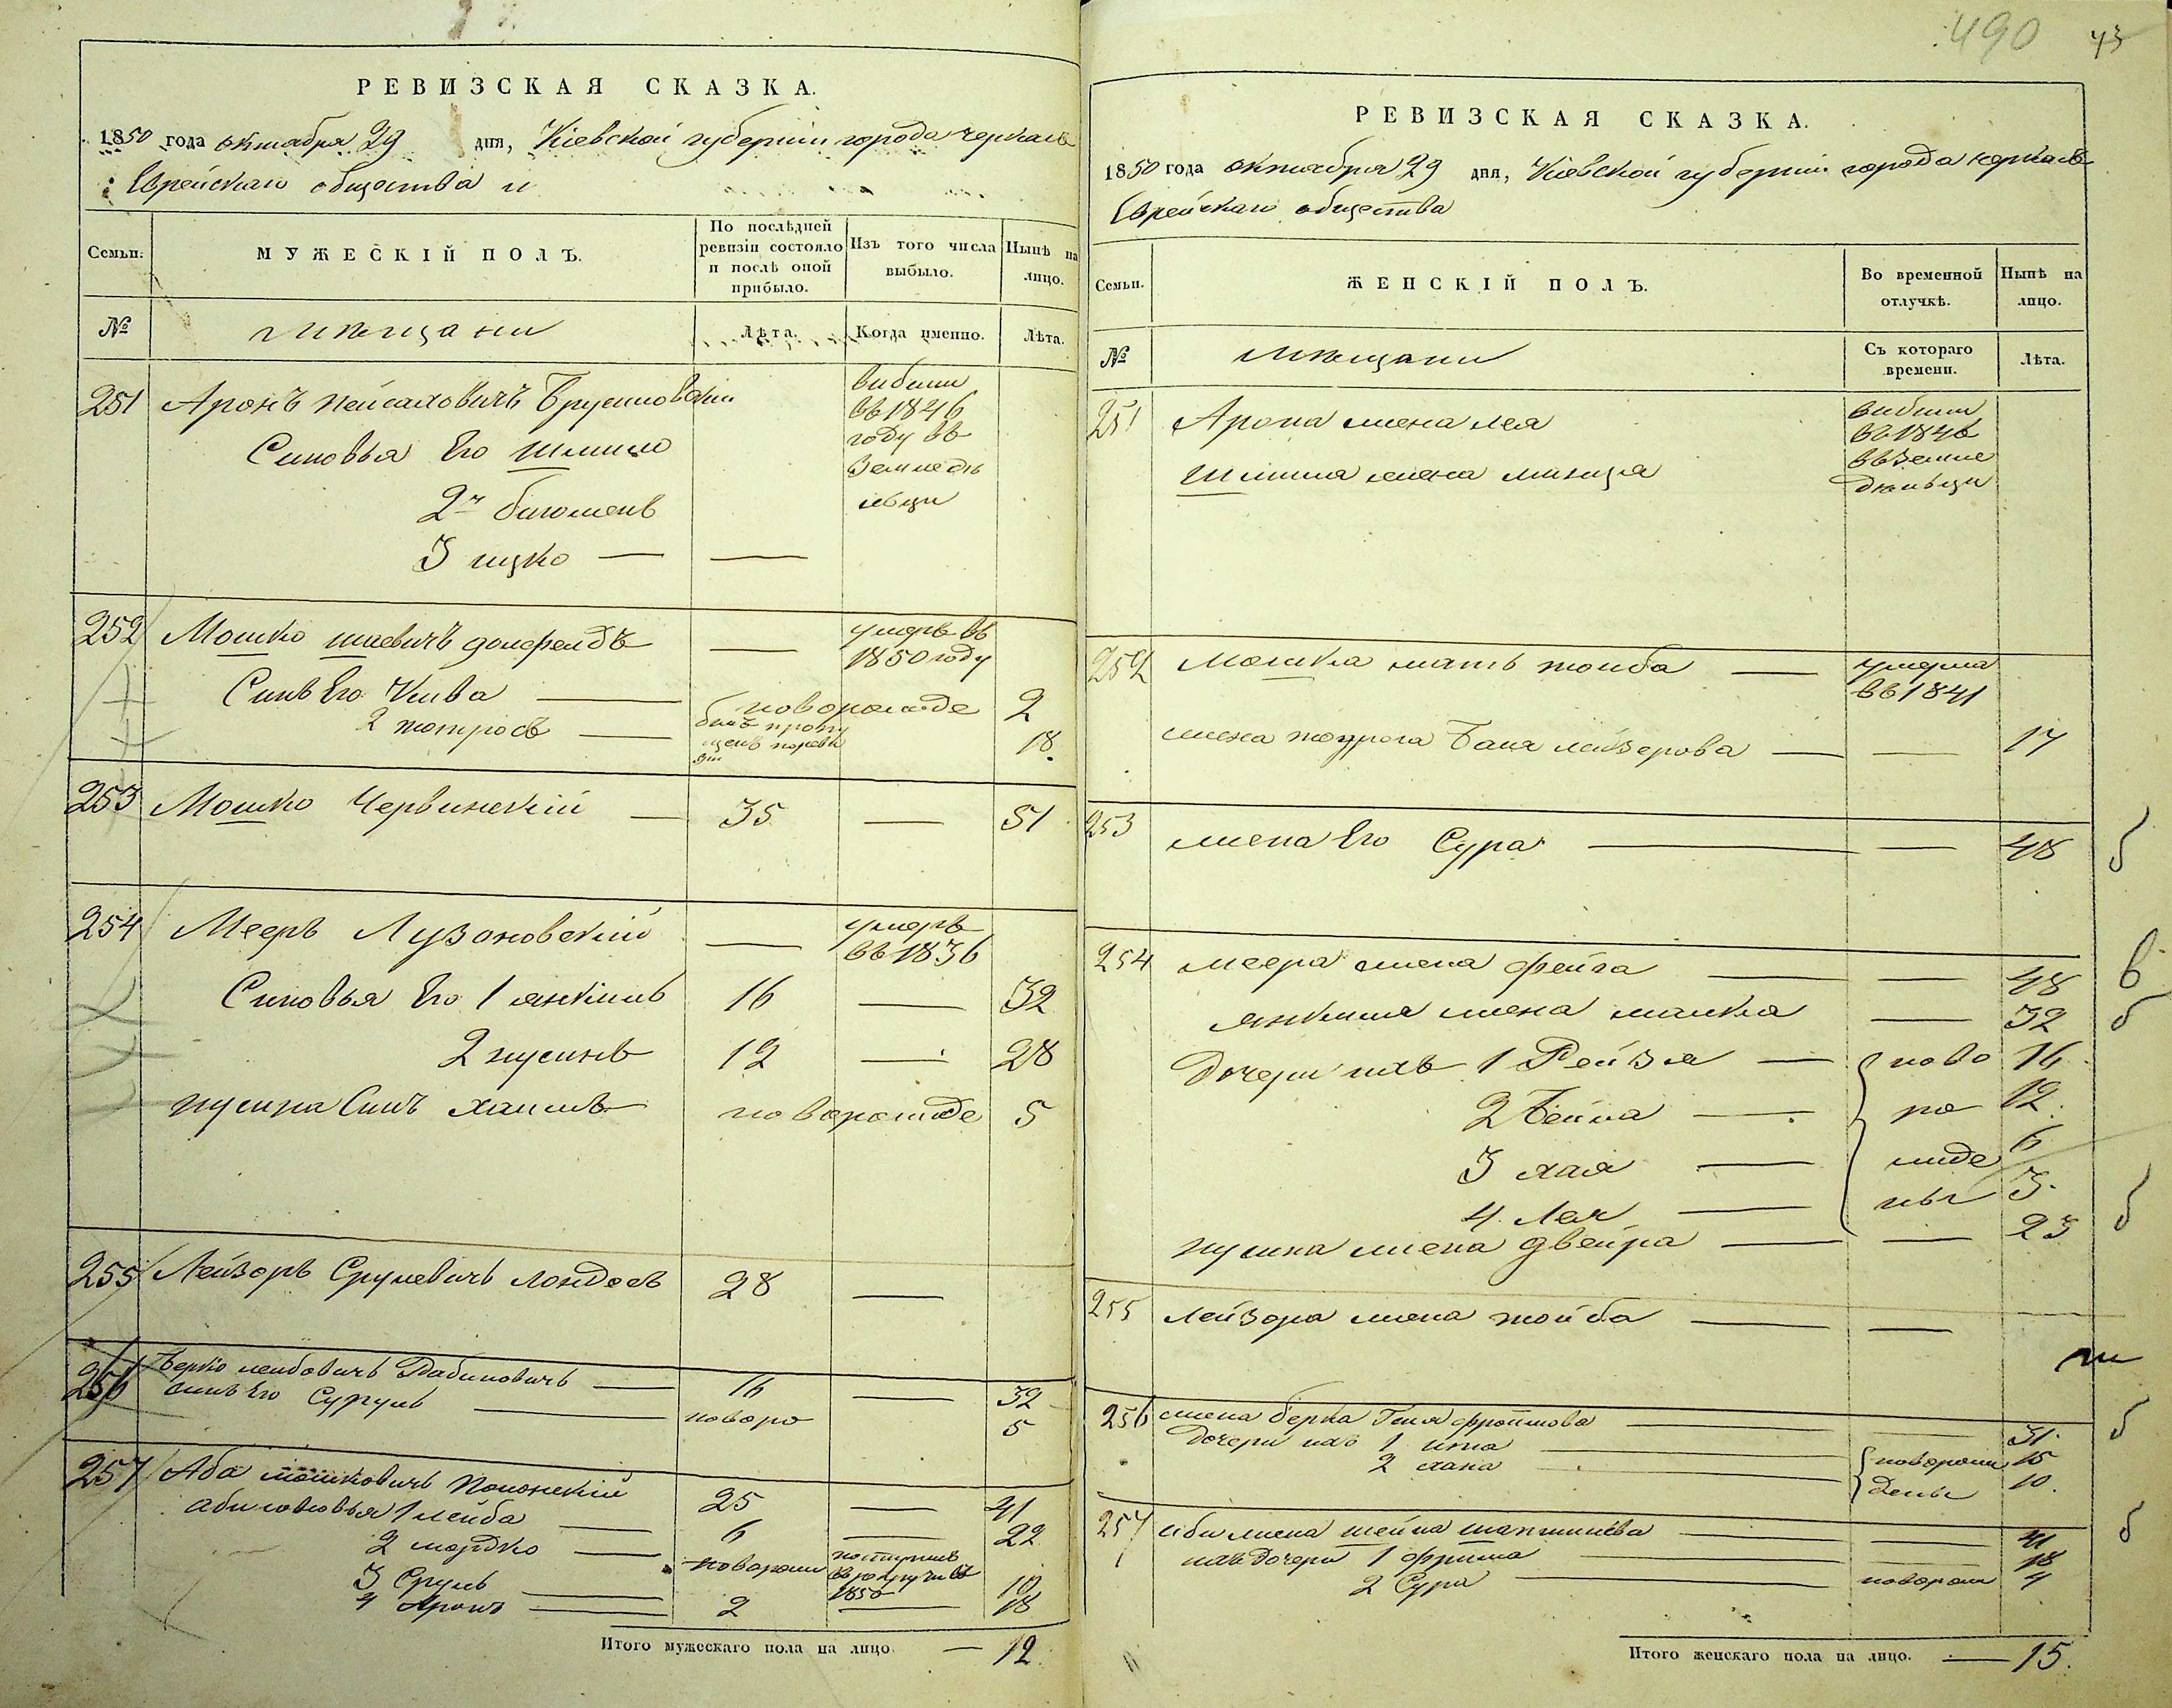 РЕВИЗСКАЯ СКАЗКА.
1850 года октября 29 дня, Кіевской губерніи города Черкасъ
Еврейскаго общества и
Семьи.
МУЖЕСКІЙ ПОЛЪ.
По послѣдней ревизіи состояло и послѣ оной прибыло.
Изъ того числа выбыло.
Нынѣ на лицо.
№
мѣщани
Лѣта.
Когда именно.
Лѣта.
251 Аронъ Пейсаховичъ Брусиловскій
выбыли въ 1846 году въ земледѣльцы
Синовья Его Шлиомо
2й
3 ицко — —
252 Мошко шаевичъ долефелдъ — умеръ въ 1850 году
Синъ Его Кива — новорожде 2
2 — билъ пропущенъ 18.
253 Мошко Червинскій — 35 — 51
254 Мееръ Лузановскій — умеръ въ 1836
Синовья Его 1 янкиль 16 — 32
2 нусинъ 12 — 28
нусина Синъ хаимъ новорожде 5
255 Лейзоръ Срулевичъ лондосъ 28 —
256 Берко лейбовичъ Рабиновичъ — 16 — 32
синъ Его Сруль — новоро 5
257 Аба мошковичъ Полонскій 25 — 41
Аби синовья 1 лейба — 6 — 22
2 мордко — новорож поступилъ въ рекруты въ 1850
3 Сруль — 10
4 Аронъ — 2 — 18
Итого мужескаго пола на лицо — 12.
490 43
РЕВИЗСКАЯ СКАЗКА.
1850 года октября 29 дня, Кіевской губерніи города Черкасъ
Еврейскаго общества
Семьи.
ЖЕНСКІЙ ПОЛЪ.
Во временной отлучкѣ.
Нынѣ на лицо.
№
мѣщани
Съ котораго времени.
Лѣта.
251 Арона жена лея
выбыли въ 1846 въ земледѣльцы
жена
252 Мошка мать тойба — умерла въ 1841
жена Баня лейзерова — — 17
253 жена Его Сура — — 48
254 меера жена фейга — — 48
янкиля жена малка — 32
дочери ихъ 1 Рейзя — новорожденыи 16
2 Бейла — 12
3 хая — 6
4 Лея — 3
нусина жена двейра — — 23
255 лейзора жена тойба — —
256 жена берка Геня фроимова — — 31
дочери ихъ 1 ита — новорождены 15
2 хана — 10
257 аби жена шейна — — 41
ихъ дочери 1 фрима — — 18
2 Сура — новорож 4
Итого женскаго пола на лицо. — 15.